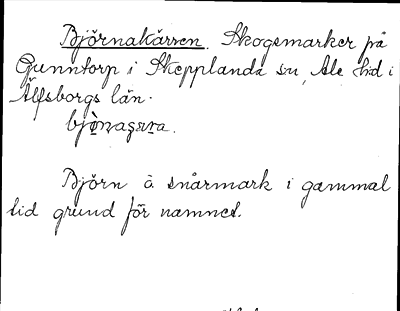 Björnakärren. Skogsmarker på
Gunntorp i Skepplanda sn, Ale hd i
Älfsborgs län.
Björn å snårmark i gammal
tid grund för namnet.